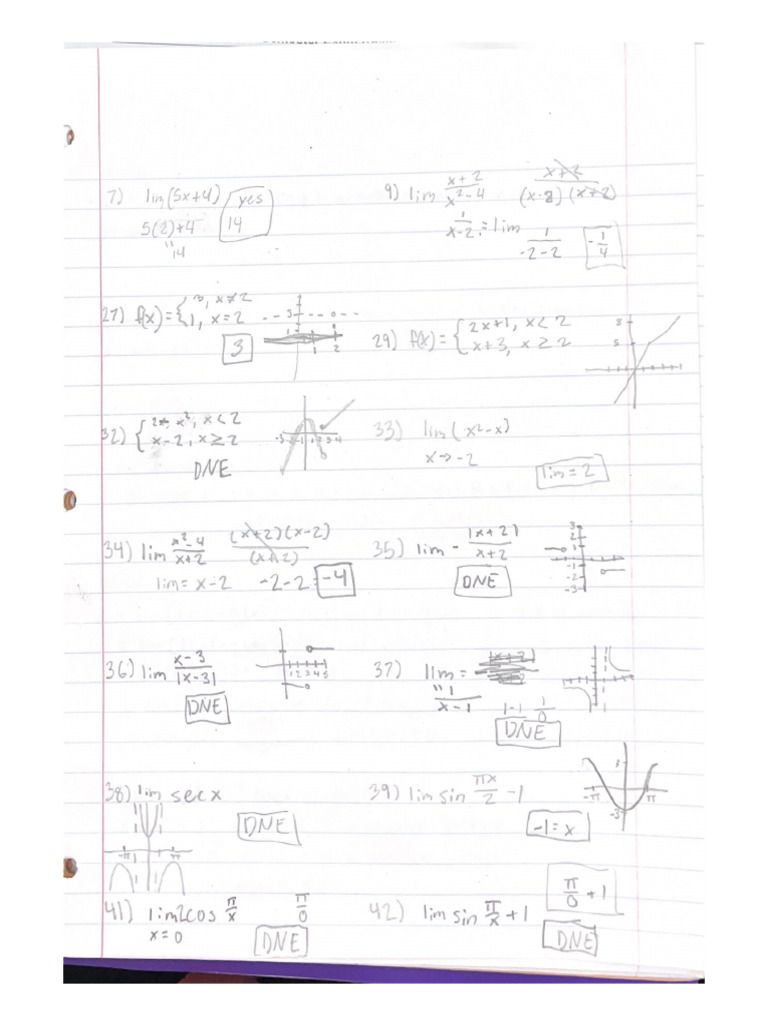 7) lim(5x+4) yes
5(2)+4 14
"14
9) lim x+2/x²-4 x+2/(x-2)(x+2)
1/x-2 = lim 1/-2-2 -1/4
27) f(x)={3, x≠2
1, x=2
3
3 1 1 2
29) f(x)={2x+1, x<2
x+3, x≥2
8
5
32) { x², x<2
x-2, x≥2
DNE
-3 -2 -1 2 3 4
33) lim(x²-x)
x→-2
lim=2
34) lim x²-4/x+2 (x+2)(x-2)/(x+2)
lim=x-2 -2-2=-4
35) lim - |x+2|/x+2
DNE
3
2
1
-1
-2
-3
36) lim x-3/|x-3|
DNE
1 2 3 4 5
37) lim=
"1/x-1 1-1 1/0
DNE
1
38) lim sec x
DNE
-π π
39) lim sin πx/2 -1
-1=x
3
-π π
-3
41) lim2cos π/x π/0
x=0
DNE
42) lim sin π/x +1
π/0 +1
DNE